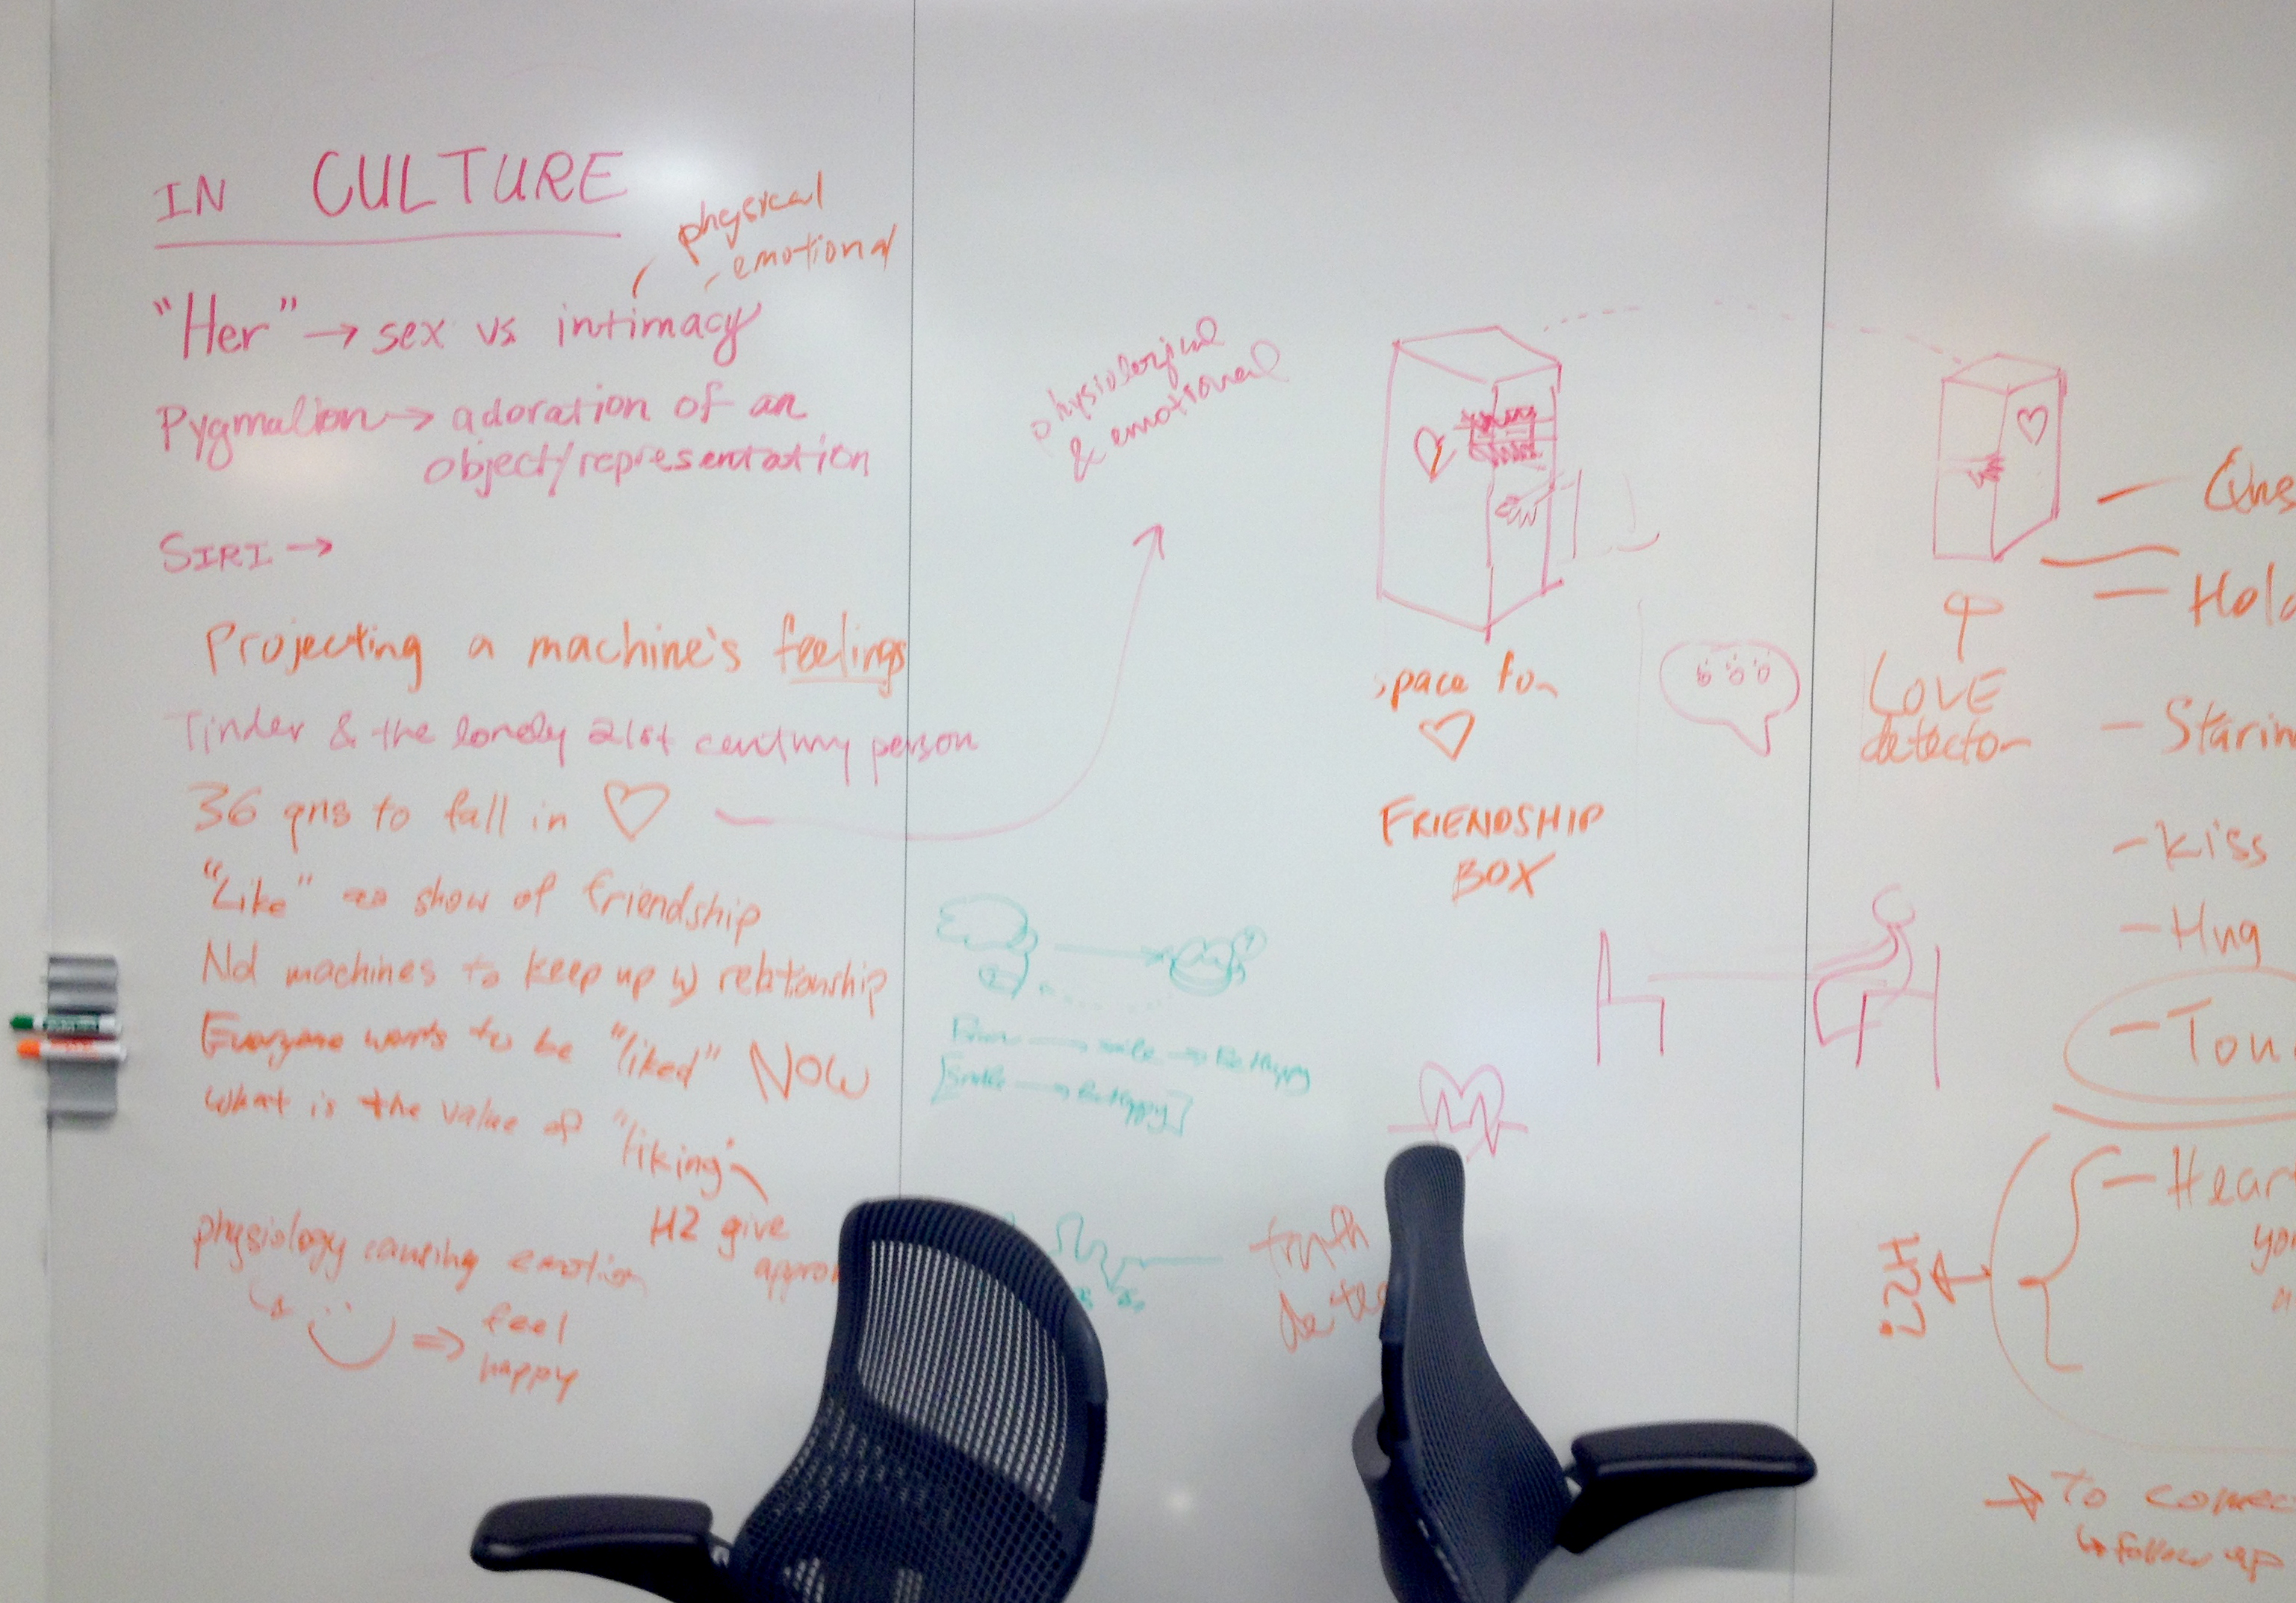 IN CULTURE
physical
emotional
"Her" → sex vs intimacy
Pygmalion → adoration of an
object/representation
SIRI →
Projecting a machine's feelings
Tinder & the lonely 21st century person
36 qns to fall in ♡
"Like" as show of friendship
machines to keep up w relationship
Everyone wants to be "liked" NOW
What is the value of "liking"
H2 give
physiology causing emotion
feel
happy
physiological
& emotional
space for
♡
FRIENDSHIP
BOX
LOVE
detector
smile → Be Happy
[Smile → Be Happy]
truth
- Staring
- Kiss
- Hug
- Heart
→ To connec
↳ follow up